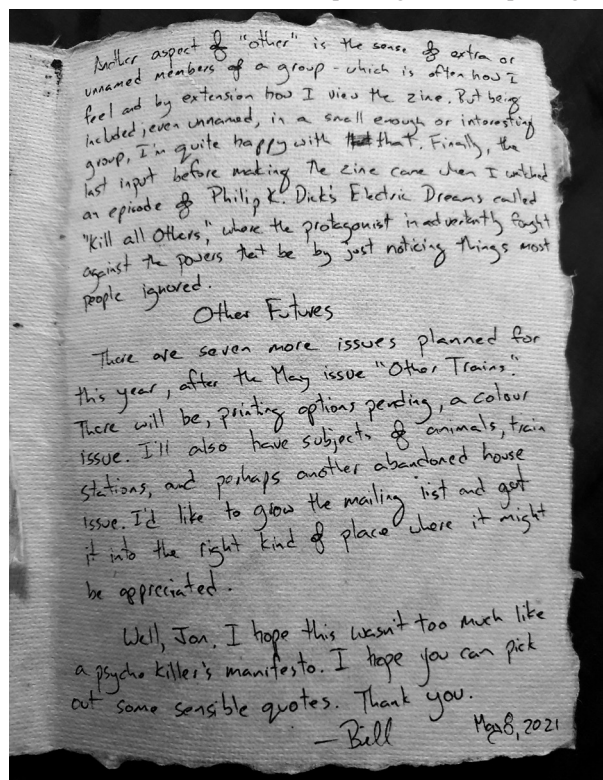 Another aspect of "other" is the sense of extra or
unnamed members of a group - which is often how I
feel and by extension how I view the zine. But being
included, even unnamed, in a small enough or interesting
group, I'm quite happy with that. Finally, the
last input before making the zine came when I watched
an episode of Philip K. Dick's Electric Dreams called
"Kill all Others," where the protagonist inadvertantly fought
against the powers that be by just noticing things most
people ignored.
Other Futures
There are seven more issues planned for
this year, after the May issue "Other Trains."
There will be, printing options pending, a colour
issue. I'll also have subjects of animals, train
stations, and perhaps another abandoned house
issue. I'd like to grow the mailing list and get
it into the right kind of place where it might
be appreciated.
Well, Jon, I hope this wasn't too much like
a psycho killer's manifesto. I hope you can pick
out some sensible quotes. Thank you.
—Bill May 8, 2021